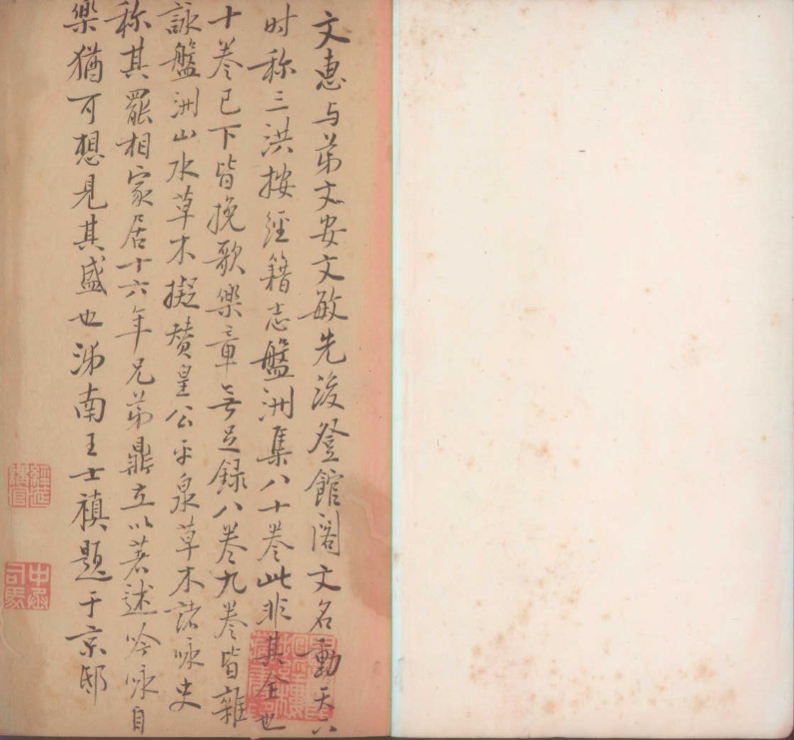 文惠与弟文安文敏先後登館阁文名動天下
时称三洪按經籍志盤洲集八十卷此非其全也
十卷已下皆挽歌樂章無足録八卷九卷皆雜
詠盤洲山水草木擬贊皇公平泉草木諸咏史
称其罷相家居十六年兄弟鼎立以著述吟咏自
樂猶可想見其盛也濟南王士禛題于京邸